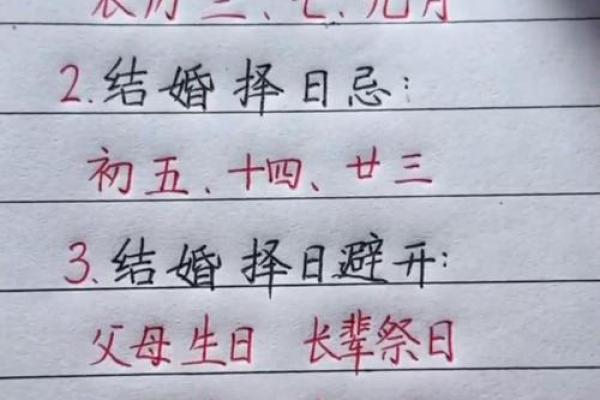 农历三、七、九月
2.结婚择日忌:
初五、十四、廿三
3.结婚择日避开:
父母生日 长辈祭日